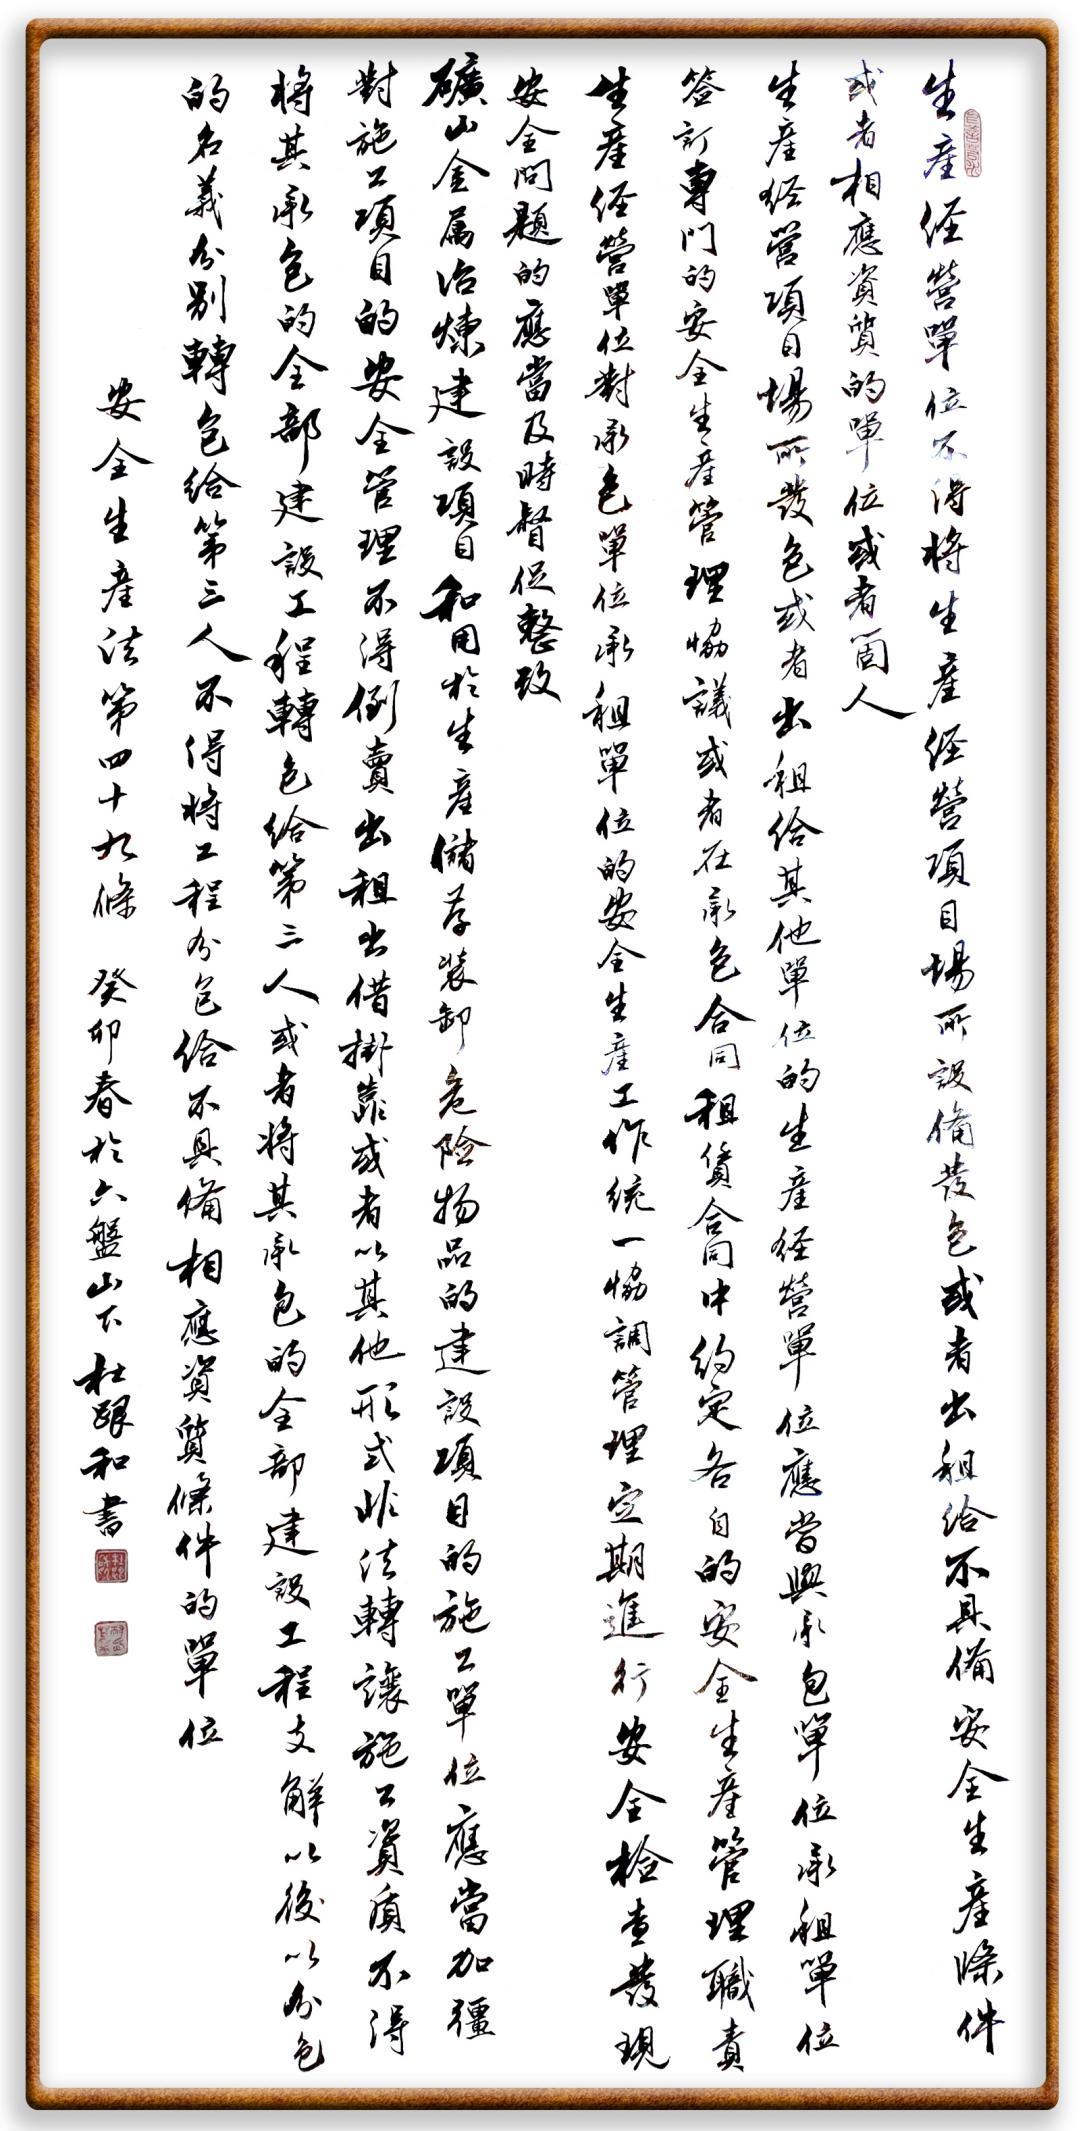 生產經營單位不得將生產經營項目場所設備發包或者出租給不具備安全生產條件
或者相應資質的單位或者箇人
生產經營項目場所發包或者出租給其他單位的生產經營單位應當與承包單位承租單位
簽訂專門的安全生產管理協議或者在承包合同租賃合同中約定各自的安全生產管理職責
生產經營單位對承包單位承租單位的安全生產工作統一協調管理定期進行安全檢查發現
安全問題的應當及時督促整改
礦山金属冶煉建設項目和用於生產儲存裝卸危險物品的建設項目的施工單位應當加彊
對施工項目的安全管理不得倒賣出租出借掛靠或者以其他形式非法轉讓施工資質不得
將其承包的全部建設工程轉包給第三人或者將其承包的全部建設工程支解以後以分包
的名義分别轉包給第三人不得將工程分包給不具備相應資質條件的單位
安全生產法第四十九條 癸卯春於六盤山下杜跟和書